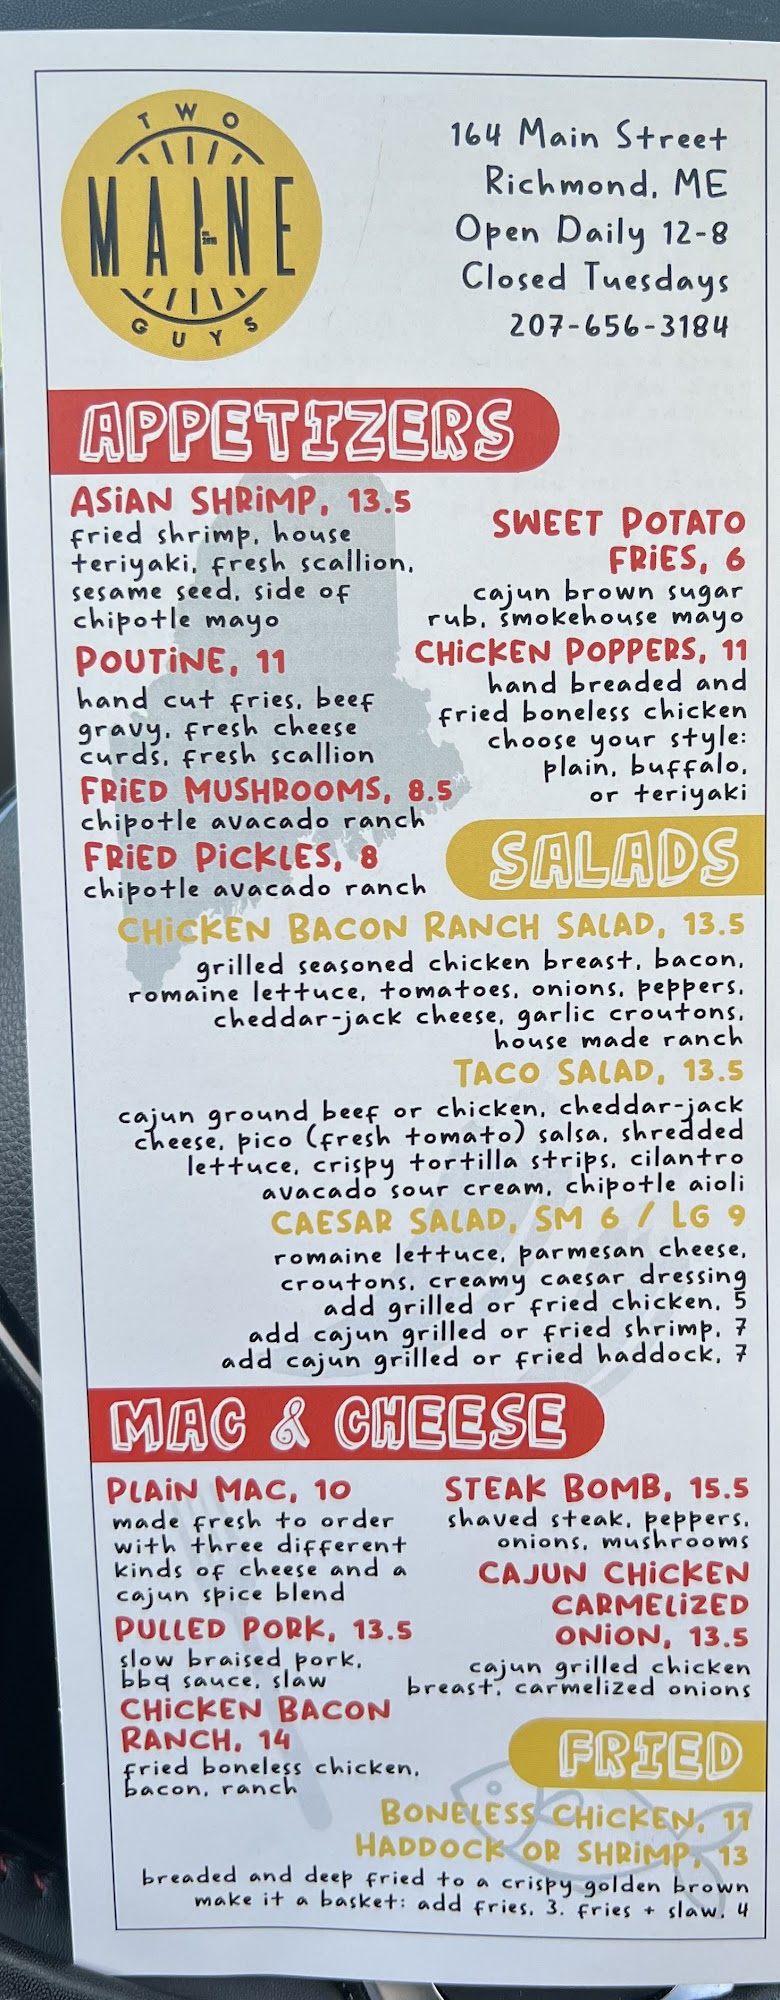 TWO
MAINE
GUYS
164 Main Street
Richmond, ME
Open Daily 12-8
Closed Tuesdays
207-656-3184
APPETIZERS
ASiAN SHRiMP, 13.5
fried shrimp, house
teriyaki, fresh scallion,
sesame seed, side of
chipotle mayo
POUTiNE, 11
hand cut fries, beef
gravy, fresh cheese
curds, fresh scallion
FRiED MUSHROOMS, 8.5
chipotle avacado ranch
FRiED PiCKLES, 8
chipotle avacado ranch
SWEET POTATO
FRiES, 6
cajun brown sugar
rub, smokehouse mayo
CHiCKEN POPPERS, 11
hand breaded and
fried boneless chicken
choose your style:
plain, buffalo,
or teriyaki
SALADS
CHiCKEN BACON RANCH SALAD, 13.5
grilled seasoned chicken breast, bacon,
romaine lettuce, tomatoes, onions, peppers,
cheddar-jack cheese, garlic croutons,
house made ranch
TACO SALAD, 13.5
cajun ground beef or chicken, cheddar-jack
cheese, pico (fresh tomato) salsa, shredded
lettuce, crispy tortilla strips, cilantro
avacado sour cream, chipotle aioli
CAESAR SALAD, SM 6 / LG 9
romaine lettuce, parmesan cheese,
croutons, creamy caesar dressing
add grilled or fried chicken, 5
add cajun grilled or fried shrimp, 7
add cajun grilled or fried haddock, 7
MAC & CHEESE
PLAiN MAC, 10
made fresh to order
with three different
kinds of cheese and a
cajun spice blend
PULLED PORK, 13.5
slow braised pork,
bbq sauce, slaw
CHiCKEN BACON
RANCH, 14
fried boneless chicken,
bacon, ranch
STEAK BOMB, 15.5
shaved steak, peppers,
onions, mushrooms
CAJUN CHiCKEN
CARMELiZED
ONiON, 13.5
cajun grilled chicken
breast, carmelized onions
FRIED
BONELESS CHiCKEN, 11
HADDOCK OR SHRiMP, 13
breaded and deep fried to a crispy golden brown
make it a basket: add fries, 3. fries + slaw, 4